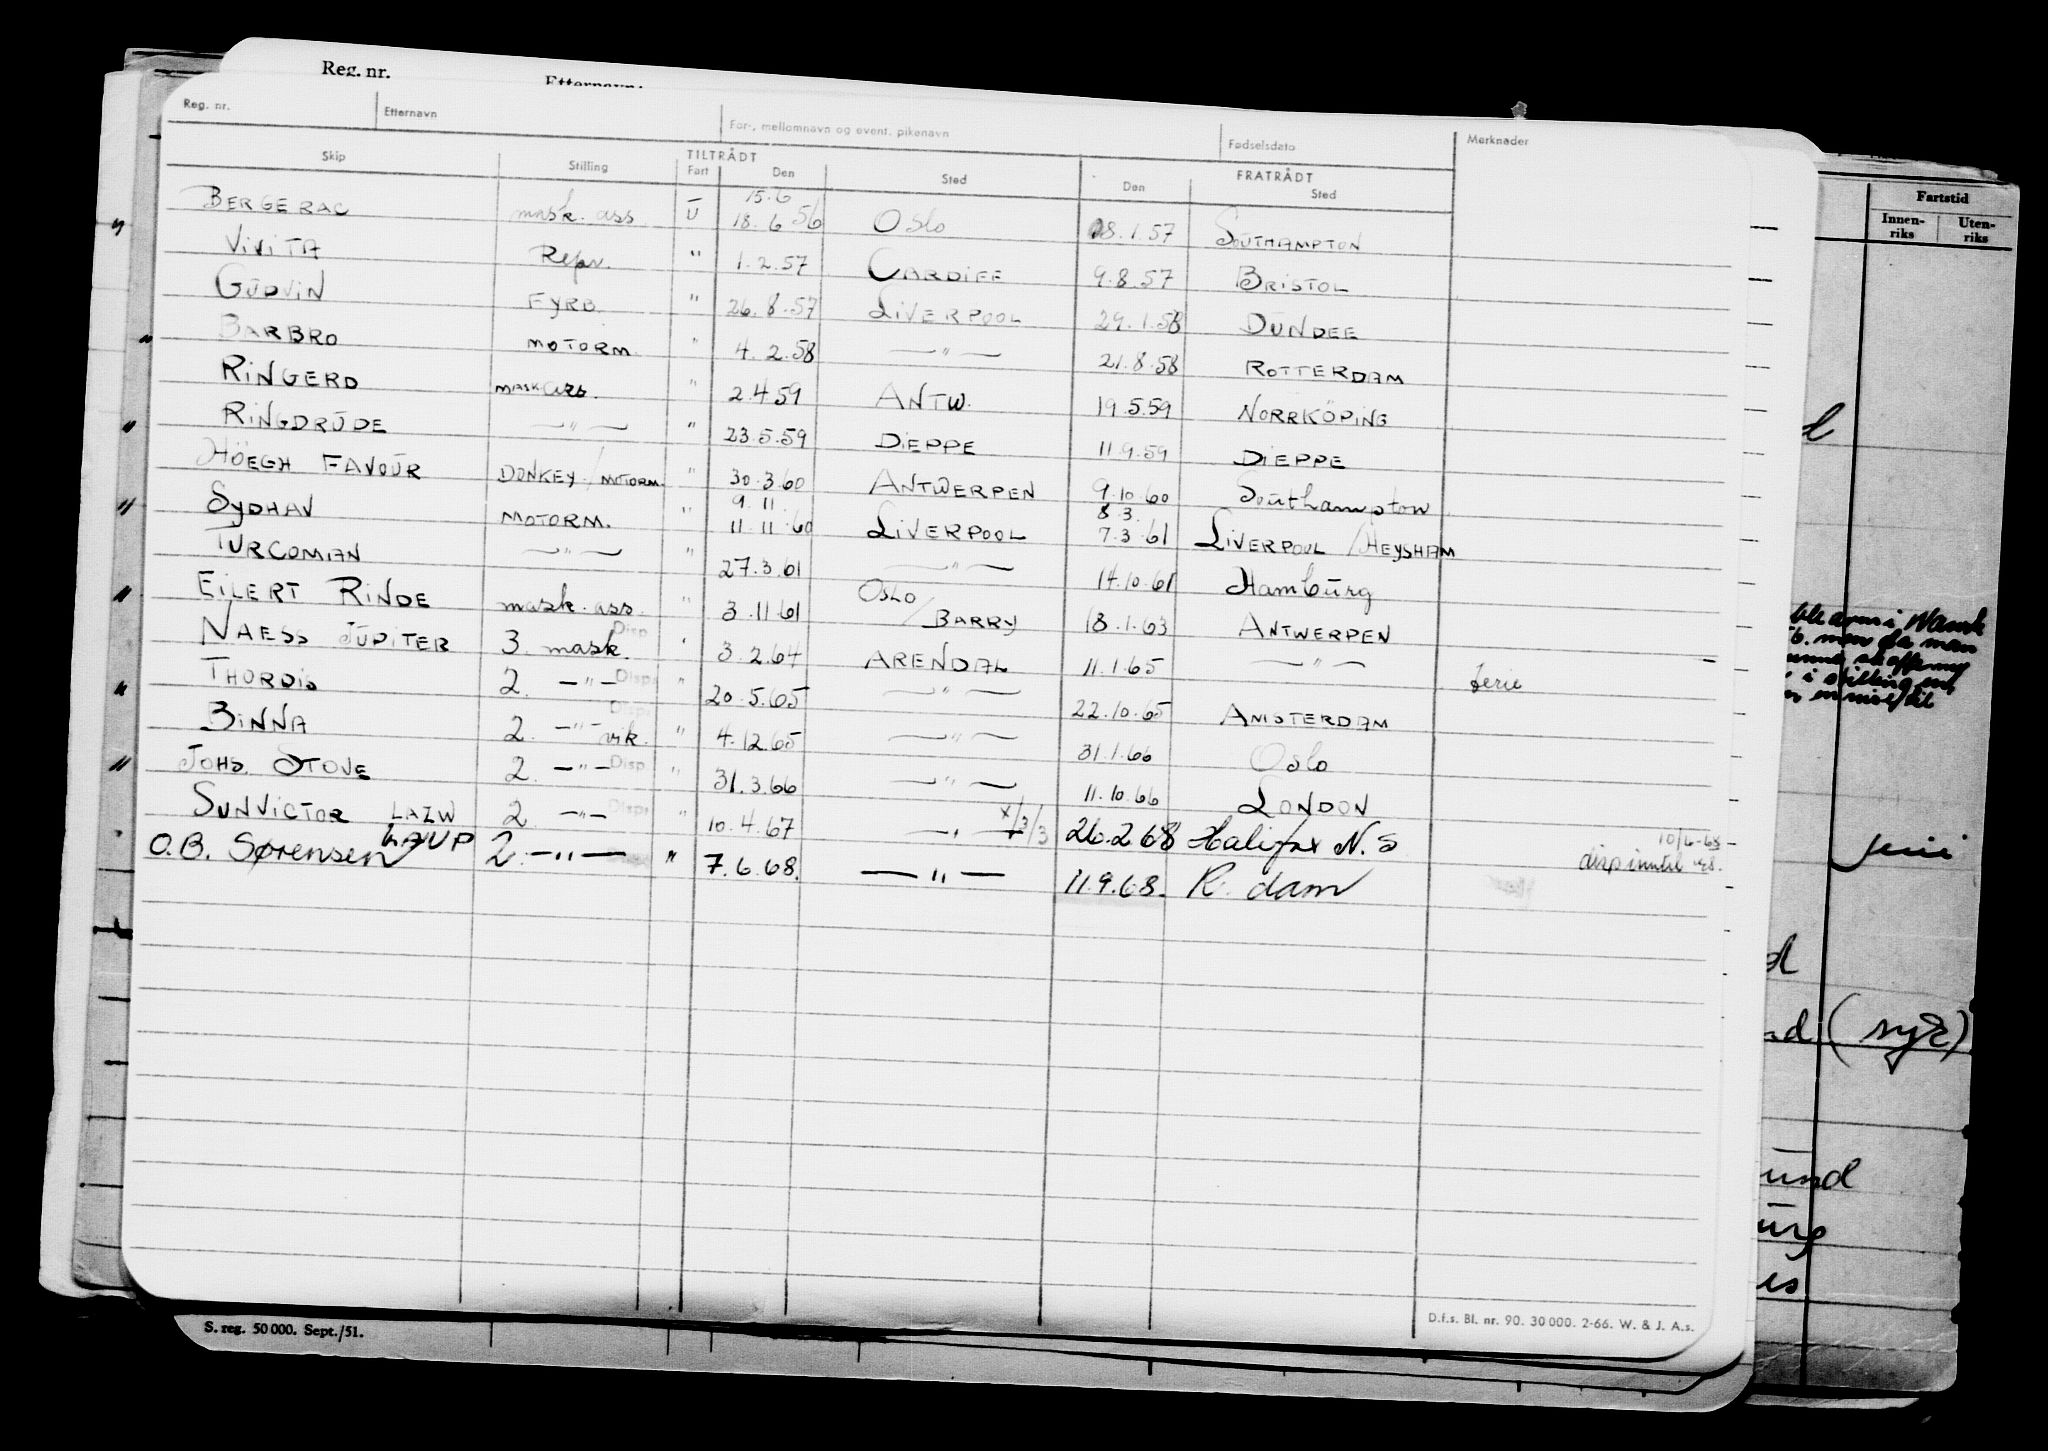 Reg. nr.
Reg. nr. Etternavn For-, mellomnavn og event. pikenavn Fødselsdato Merknader
Skip Stilling TILTRÅDT FRATRÅDT
Fart Den Sted Den Sted
15.6
BERGERAC mask. ass. U 18.6 56 Oslo 18.1.57 SOUTHAMPTON
VIVITA Repr. " 1.2.57 CARDIFF 9.8.57 BRISTOL
GUDVIN FYRB. " 26.8.57 LIVERPOOL 29.1.58 DUNDEE
BARBRO MOTORM. " 4.2.58 —"— 21.8.58 ROTTERDAM
RINGERD MASK ASS. " 2.4 59 ANTW. 19.5.59 NORRKÖPING
RINGDRUDE —"— " 23.5.59 DIEPPE 11.9.59 DIEPPE
HÖEGH FAVOUR DONKEY/MOTORM. " 30.3.60 ANTWERPEN 9.10.60 Southampton
9.11. 8.3.
SYDHAV MOTORM. " 11.11.60 LIVERPOOL 7.3.61 LIVERPOOL/HEYSHAM
TURCOMAN —"— " 27.3.61 —"— 14.10.61 Hamburg
EILERT RINDE mask. ass. " 3.11 61 OSLO/BARRY 18.1.63 ANTWERPEN
NAESS JUPITER 3. mask. Disp " 3.2.64 ARENDAL 11.1.65 —"— ferie
THORDIS 2. —"— Disp " 20.5.65 —"— 22.10.65 AMSTERDAM
BINNA 2. —"— vik. " 4.12.65 —"— 31.1.66 Oslo
JOHS. STOVE 2. —"— Disp " 31.3.66 —"— 11.10.66 LONDON
SUNVICTOR LAZW 2. —"— Disp " 10.4.67 —"— x/3/3 26.2 68 Halifax N.S 10/6-68
O.B. Sørensen LAUP 2. —"— " 7.6.68. —"— 11.9.68. R.dam disp inntil
D.f.s. Bl. nr. 90. 30 000. 2-66. W. & J. A.s.
S. reg. 50 000. Sept./51.
Fartstid
Innen-
riks
Uten-
riks
(syk)